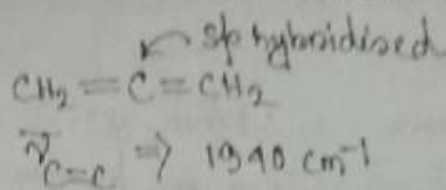 sp hybridised
CH₂ = C = CH₂
ν̃ C=C ⇒ 1940 cm⁻¹